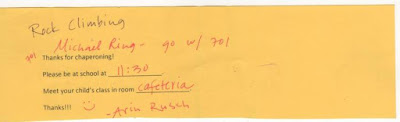 Rock Climbing
Michael Ring - go w/ 701
701
Thanks for chaperoning!
Please be at school at 11:30
Meet your child's class in room cafeteria
Thanks!!! ☺
- Arin Rusch